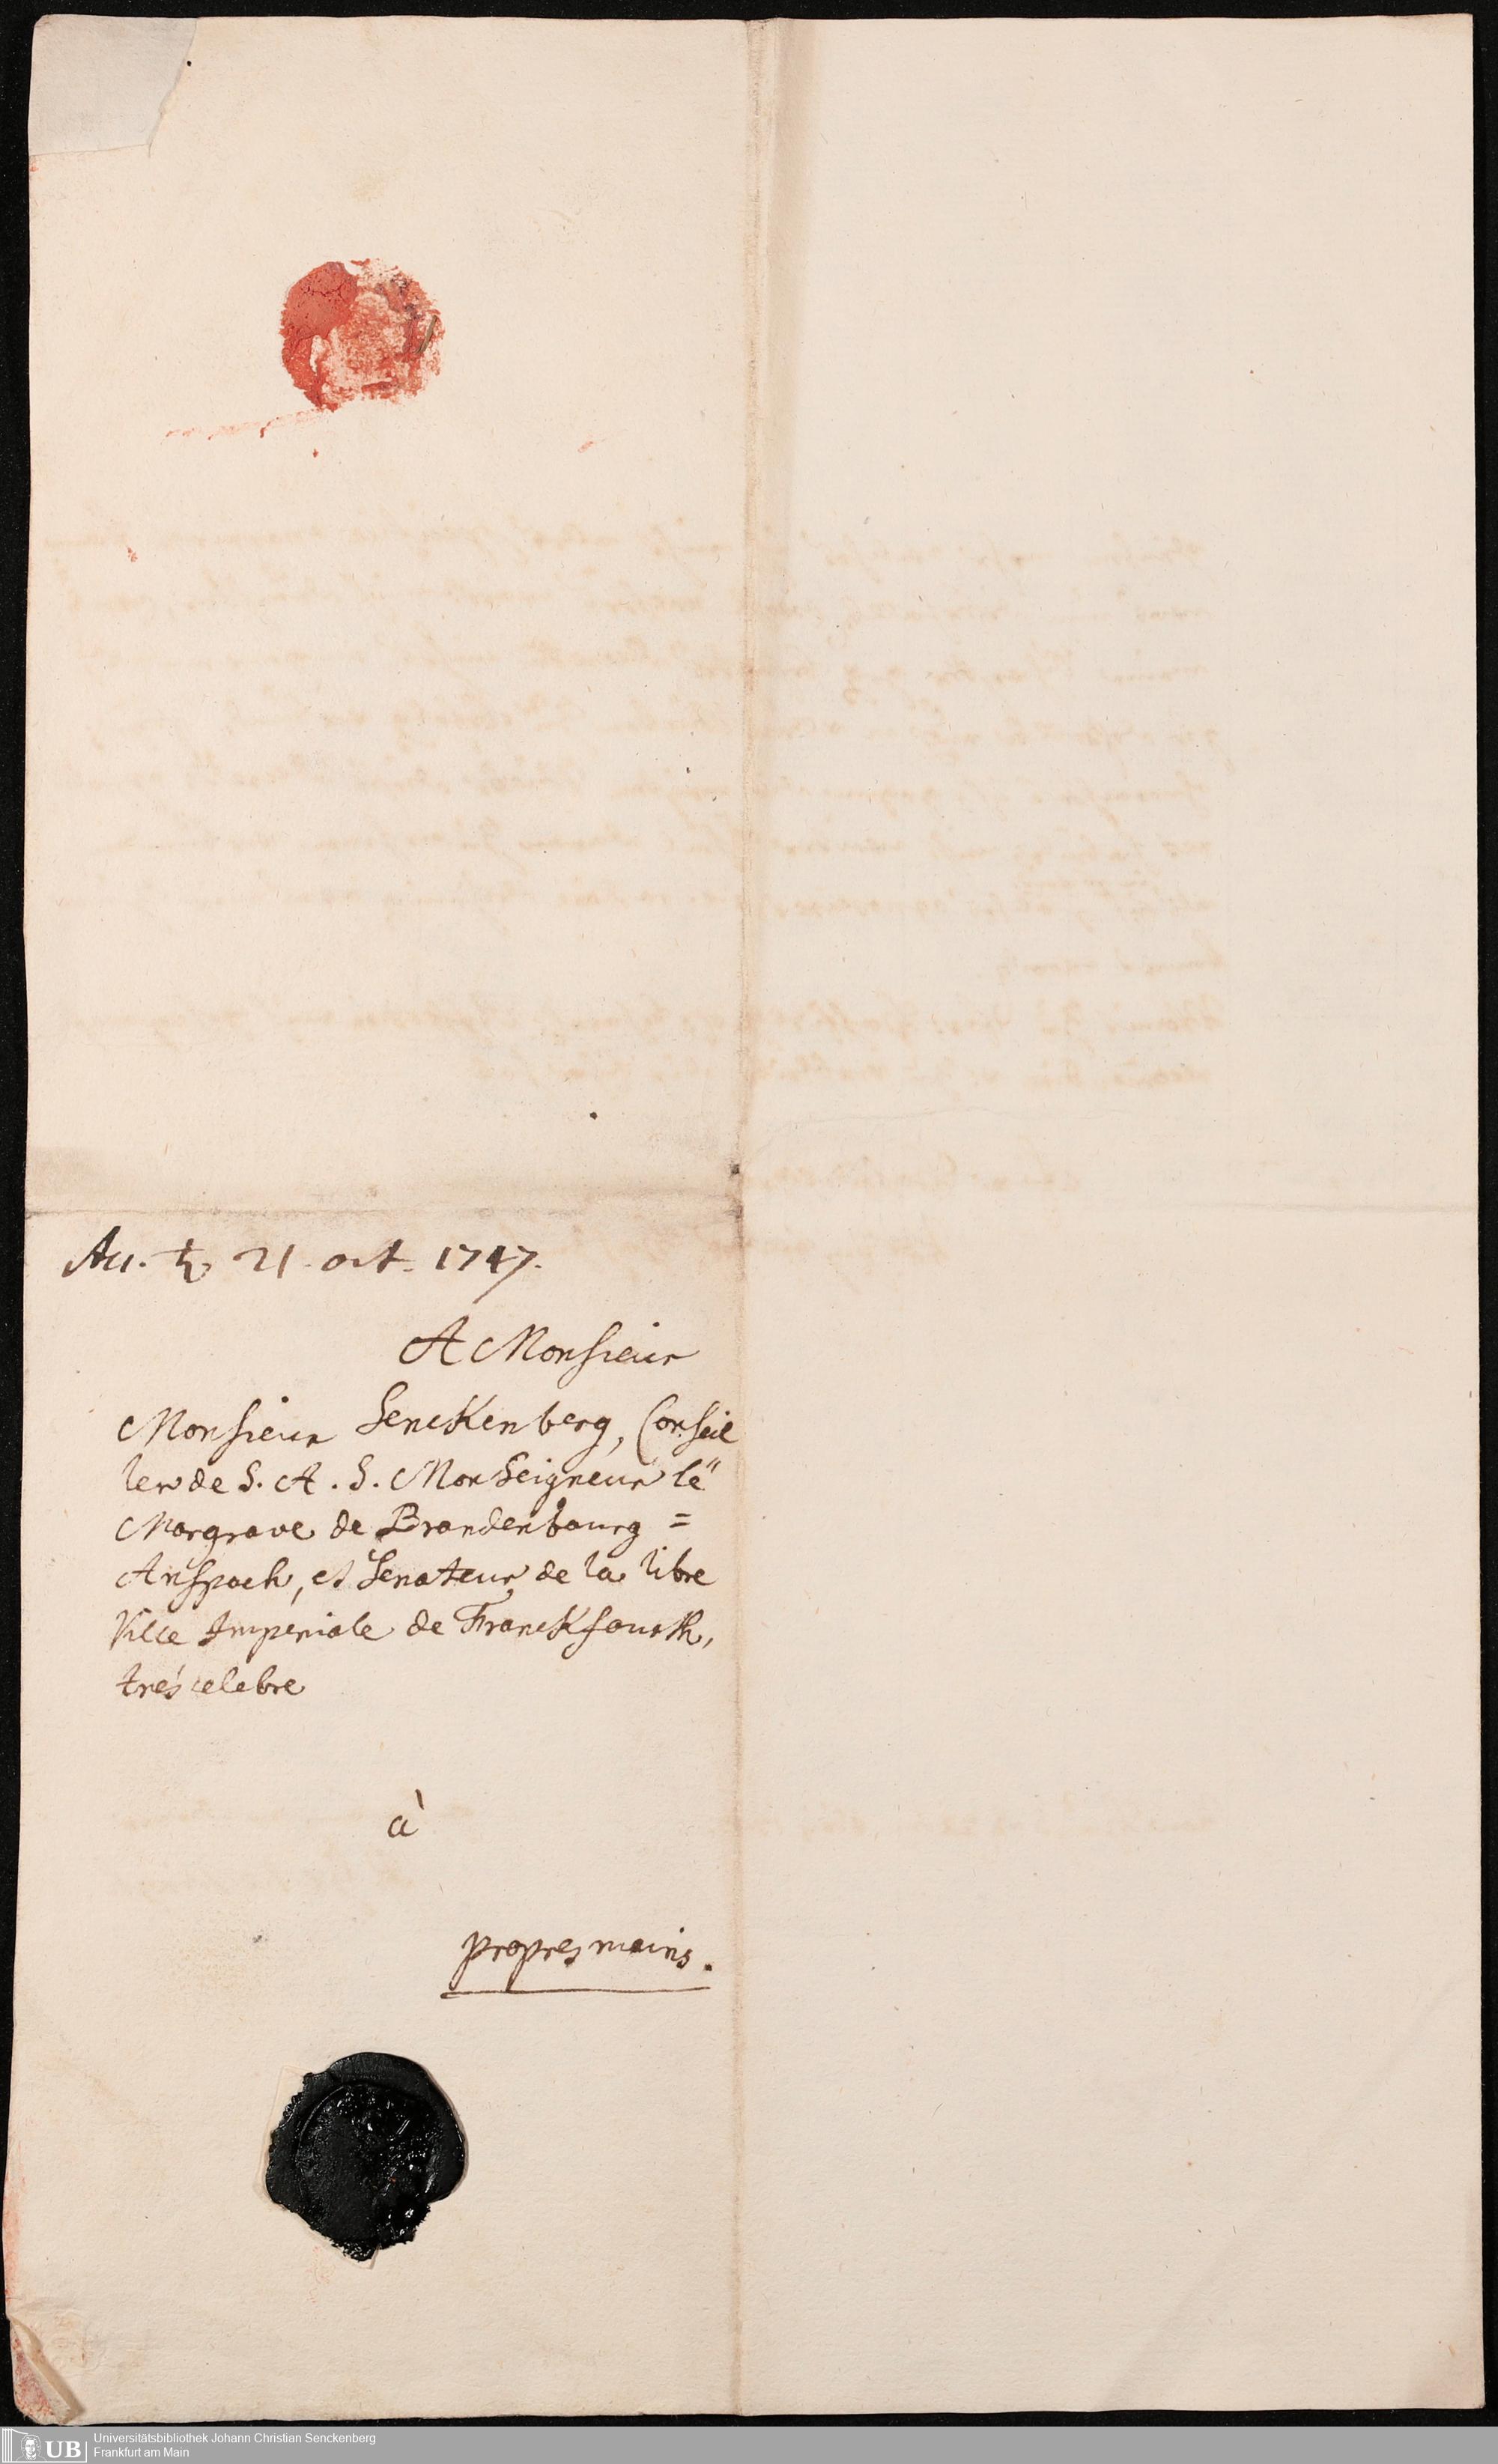 Au. ♄ 21. oct. 1747.
A Monsieur
Monsieur Senckenberg, Conseil
ler de S. A. S. Monseigneur le
Margrave de Brandenbourg =
Anspach, et Senateur de la libre
Ville Imperiale de Franckfourth,
trés celebre
à
propres mains.
UB Universitätsbibliothek Johann Christian Senckenberg
Frankfurt am Main